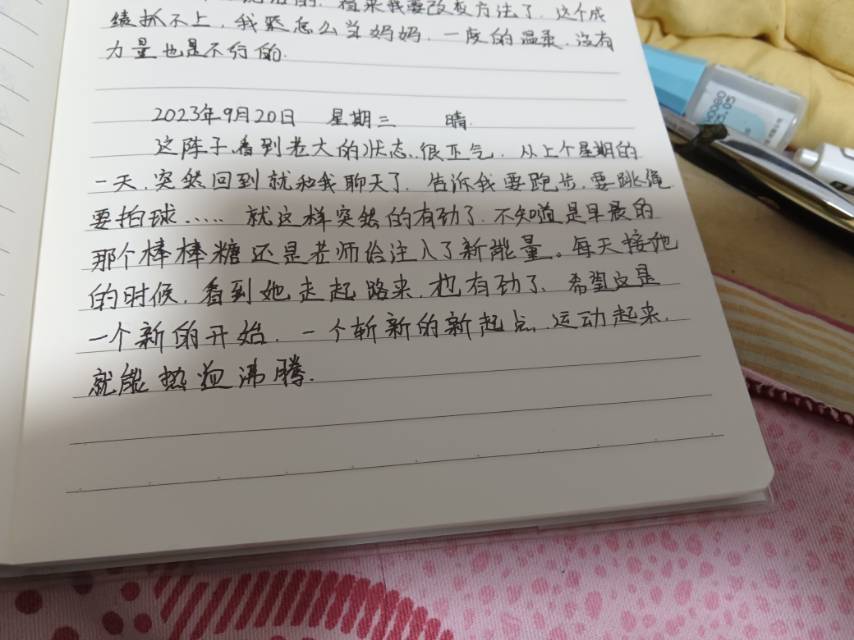 看来我要改变方法了.这个成
绩抓不上,我怎么当妈妈.一度的温柔.没有
力量也是不行的.
2023年9月20日 星期三 晴.
这阵子.看到老大的状态.很正气.从上个星期的
一天.突然回到就和我聊天了.告诉我要跑步.要跳绳
要拍球..... 就这样突然的有劲了.不知道是早晨的
那个棒棒糖还是老师给注入了新能量。每天接她
的时候.看到她走起路来.也有劲了.希望这是
一个新的开始.一个崭新的新起点.运动起来.
就能热血沸腾.